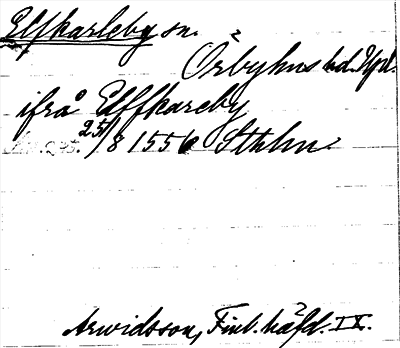 Elfkarleby sn.
Örbyhus hd. Upl.
ifrå Elffkareby
25/8 1556 Sthlm
Arwidsson, Finl. häfd. IX.